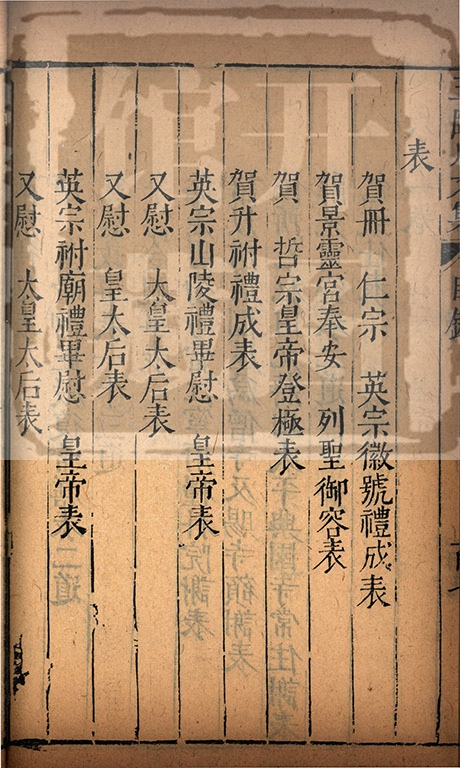 表
賀冊　仁宗　英宗徽號禮成表
賀景靈宮奉安　列聖御容表
賀　哲宗皇帝登極表
賀升祔禮成表
英宗山陵禮畢慰　皇帝表
又慰　太皇太后表
又慰　皇太后表
英宗祔廟禮畢慰　皇帝表
又慰　太皇太后表